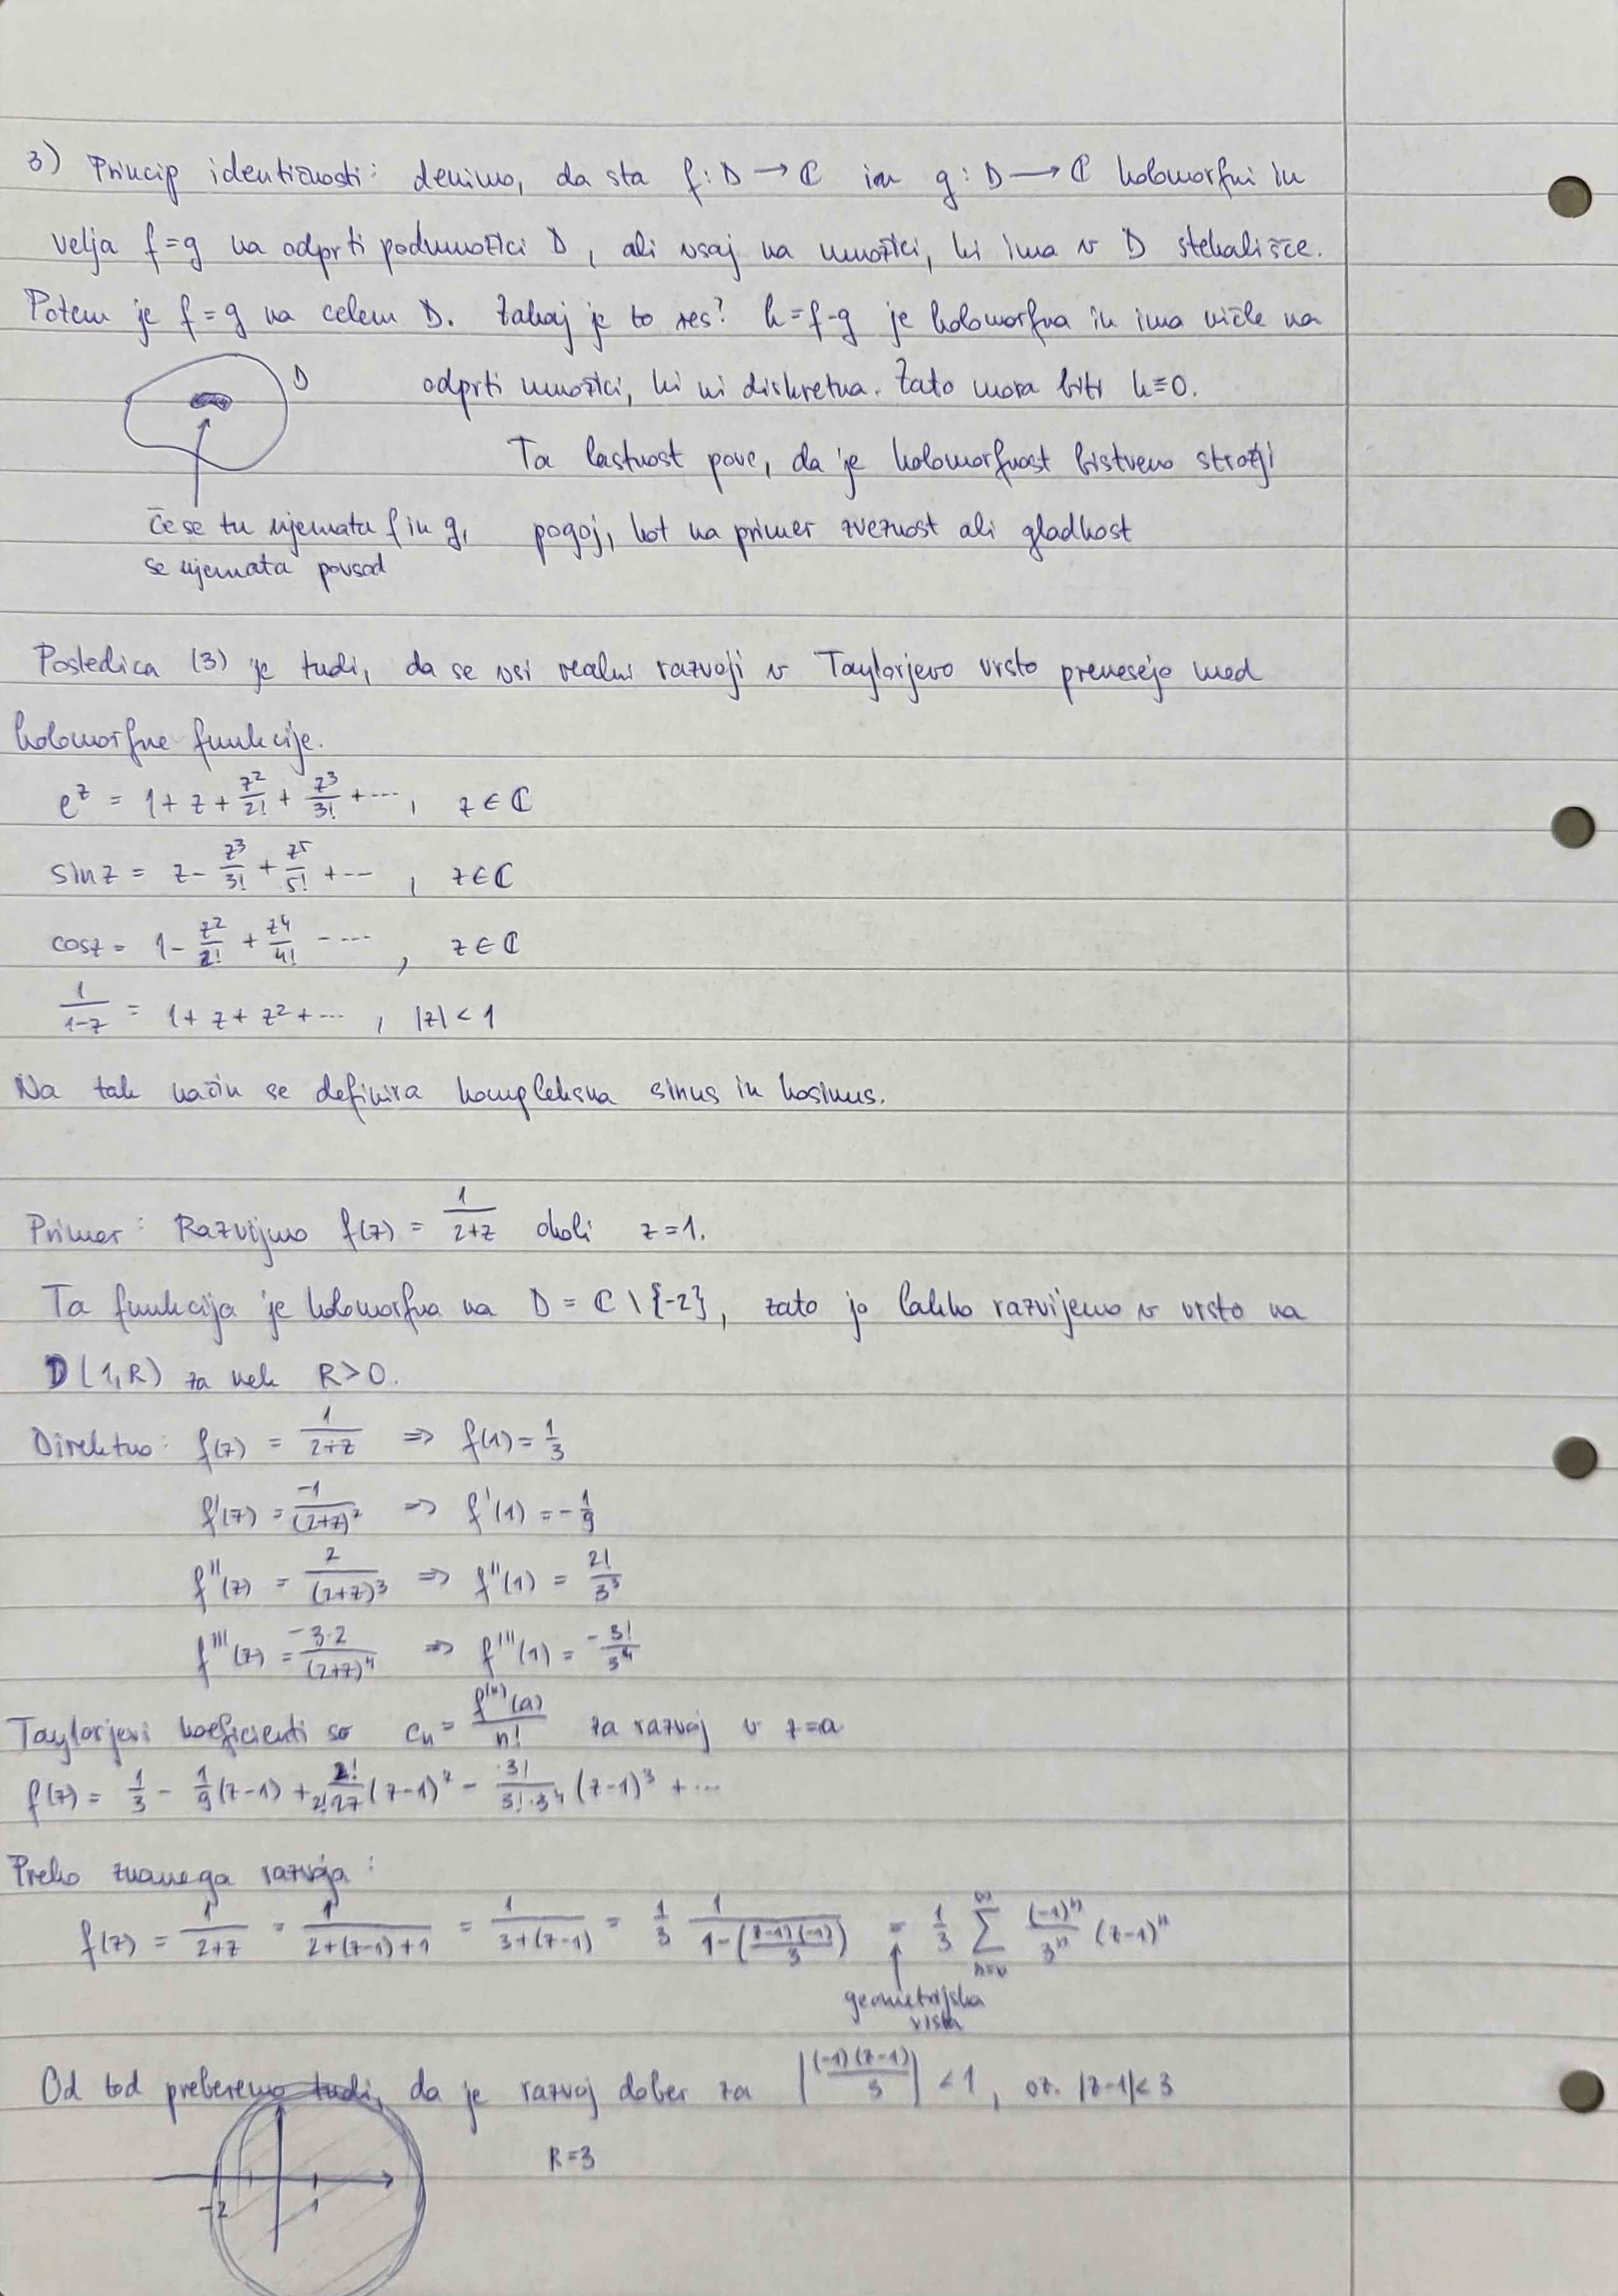 3) Princip identičnosti: denimo, da sta f: D → ℂ in g: D → ℂ holomorfni in
velja f = g na odprti podmnožici D, ali vsaj na množici, ki ima v D stekališče.
Potem je f = g na celem D. Zakaj je to res? h = f-g je holomorfna in ima ničle na
D
odprti množici, ki ni diskretna. Zato mora biti h≡0.
Ta lastnost pove, da je holomorfnost bistveno strožji
pogoj, kot na primer zveznost ali gladkost
Če se tu ujemata f in g,
se ujemata povsod
Posledica (3) je tudi, da se vsi realni razvoji v Taylorjevo vrsto prenesejo med
holomorfne funkcije.
e^z = 1 + z + z²/2! + z³/3! + ..., z ∈ ℂ
sin z = z - z³/3! + z⁵/5! + ..., z ∈ ℂ
cos z = 1 - z²/2! + z⁴/4! - ..., z ∈ ℂ
1/(1-z) = 1 + z + z² + ..., |z| < 1
Na tak način se definira kompleksna sinus in kosinus.
Primer: Razvijmo f(z) = 1/(2+z) okoli z = 1.
Ta funkcija je holomorfna na D = ℂ \ {-2}, zato jo lahko razvijemo v vrsto na
D(1,R) za nek R>0.
Direktno: f(z) = 1/(2+z) ⇒ f(1) = 1/3
f'(z) = -1/(2+z)² ⇒ f'(1) = -1/9
f''(z) = 2/(2+z)³ ⇒ f''(1) = 2!/3³
f'''(z) = -3·2/(2+z)⁴ ⇒ f'''(1) = -3!/3⁴
Taylorjevi koeficienti so cₙ = f⁽ⁿ⁾(a)/n! za razvoj v z=a
f(z) = 1/3 - 1/9 (z-1) + 2!/(2!27) (z-1)² - 3!/(3!·3⁴) (z-1)³ + ...
Preko znanega razvoja:
f(z) = 1/(2+z) = 1/(2+(z-1)+1) = 1/(3+(z-1)) = 1/3 1/(1-((z-1)(-1)/3)) = 1/3 ∑_{n=0}^{∞} (-1)ⁿ/3ⁿ (z-1)ⁿ
geometrijska
vrsta
Od tod preberemo tudi, da je razvoj dober za |(-1)(z-1)/3| < 1, oz. |z-1| < 3
R=3
-2 1